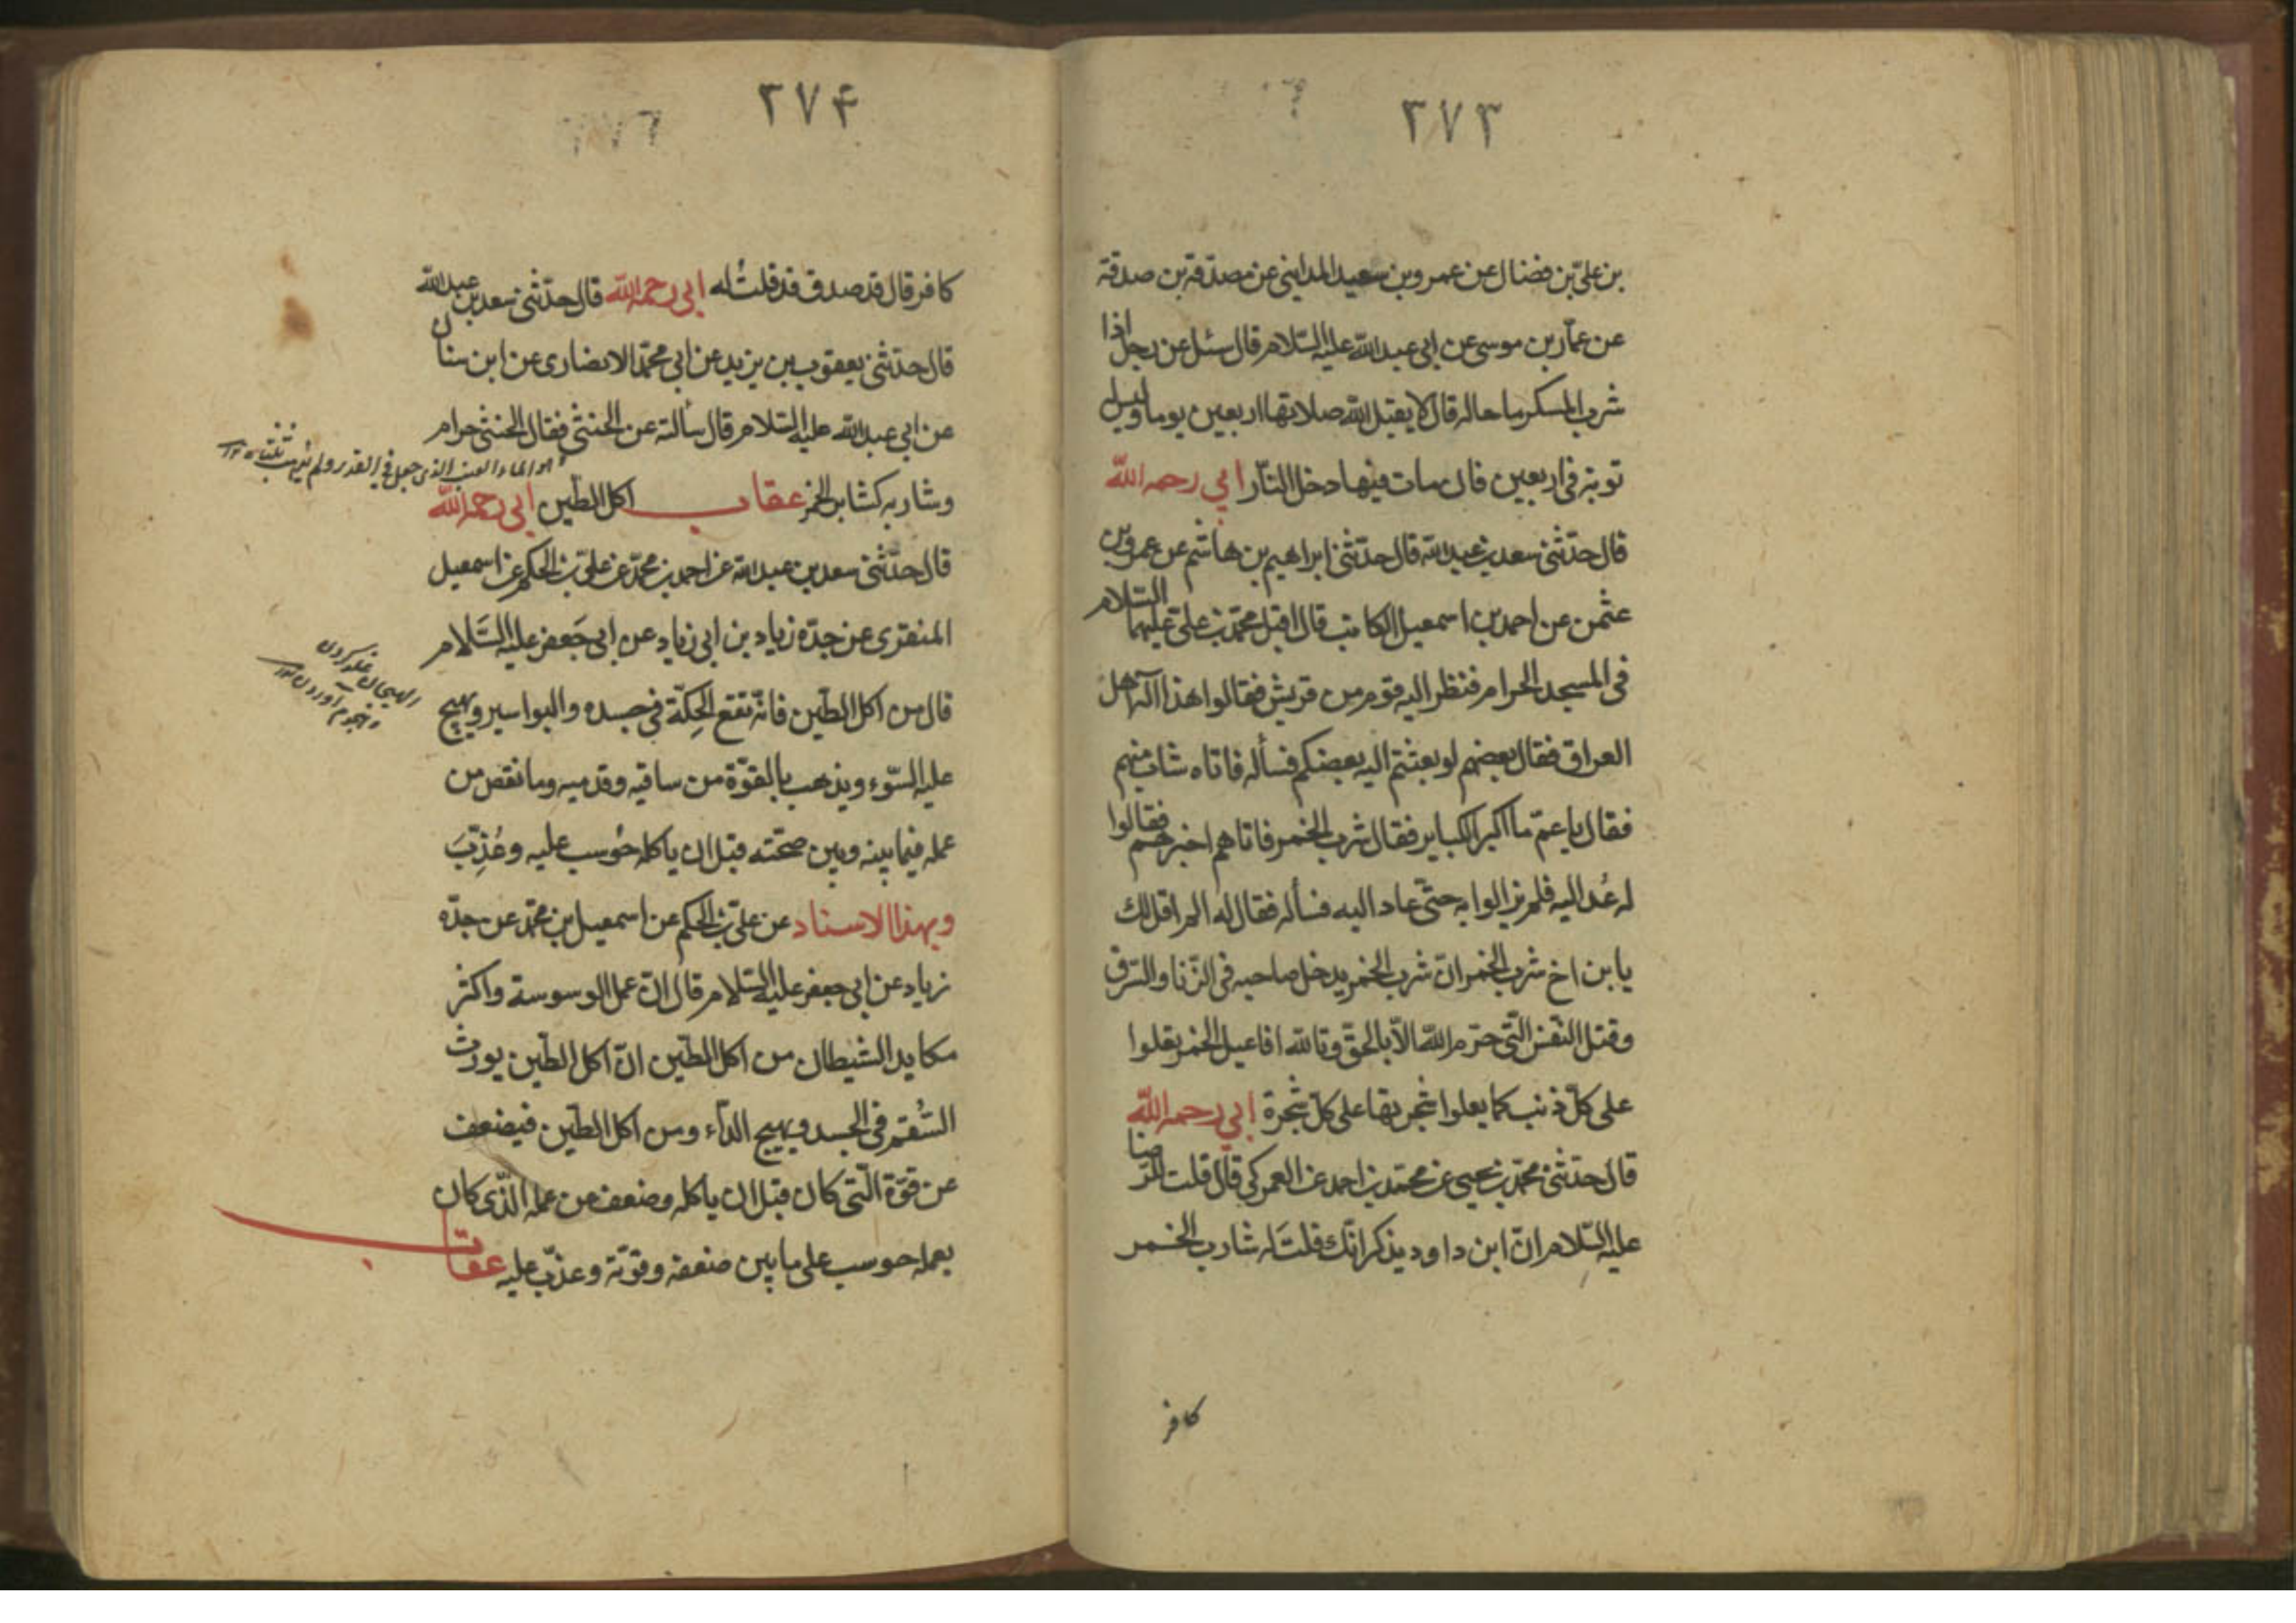 ٢٧٣
بن علىّ بن فضال عن عمرو بن سعيد المداينى عن مصدقة بن صدقة
عن عمّار بن موسى عن ابى عبد الله عليه السّلام قال سئل عن رجل اذا
شرب المسكر ما حاله قال لا يقبل الله صلاتها اربعين يوما وليس
توبة فى اربعين فان مات فيها دخل النّار ابي رحمه اللّه
قال حدّثنى سعد بن عبد الله قال حدّثنى ابراهيم بن هاشم عن عمرو بن
عثمن عن احمد بن اسمعيل الكاتب قال اقبل محمّد بن على عليهما السّلام
فى المسجد الحرام فنظر اليه قوم من قريش فقالوا هذا اله اهل
العراق فقال بعضهم لو بعثتم اليه بعضكم فسأله فاتاه شاب منهم
فقال يا عمّ ما اكبر الكباير فقال شرب الخمر فاتاهم اخبرهم فقالوا
له عُد اليه فلم يزالوا به حتّى عاد اليه فسأله فقال له الم اقل لك
يا بن اخ شرب الخمر انّ شرب الخمر يدخل صاحبه فى الزّنا والسّرق
وقتل النّفس الّتى حرّم اللّه الّا بالحقّ وتالله افاعيل الخمر يعلوا
على كلّ ذنب كما يعلوا شجرتها على كلّ شجرة ابي رحمه اللّه
قال حدّثنى محمّد بن يحيى عن محمّد بن احمد عن العمركى قال قلت للرّضا
عليه السّلام انّ ابن داود يذكر انّك قلت له شارب الخمر
كافر
٢٧۴
كافر قال قد صدق قد قلتُ له ابي رحمه اللّه قال حدّثنى سعد بن عبد الله
قال حدّثنى يعقوب بن يزيد عن ابى محمّد الانصارى عن ابن سنان
عن ابى عبد الله عليه السّلام قال سألته عن الخنثى فقال الخنثى حرام
وشاربه كشارب الخمر عقاب اكل الطّين ابي رحمه اللّه
قال حدّثنى سعد بن عبد الله عن احمد بن محمّد عن علىّ بن الحكم عن اسمعيل
المنقرى عن جدّه زياد بن ابى زياد عن ابى جعفر عليه السّلام
قال من اكل الطّين فانّه تقع الحِكّة فى جسده والبواسير ويهيج
عليه السّوء ويذهب بالقوّة من ساقيه وقدميه وما نقص من
عمله فيما بينه وبين صحّته قبل ان ياكله حُوسب عليه وعُذِّبَ
وبهذا الاسناد عن علىّ بن الحكم عن اسمعيل بن محمّد عن جدّه
زياد عن ابى جعفر عليه السّلام قال انّ عمل الوسوسة واكثر
مكايد الشيطان من اكل الطّين انّ اكل الطّين يورث
السُّقم فى الجسد ويهيج الدّاء ومن اكل الطّين فيضعف
عن قوّة الّتى كان قبل ان ياكله وضعف عن عمله الّذى كان
يعمله حوسب على ما بين ضعفه وقوّته وعذّب عليه عقاب